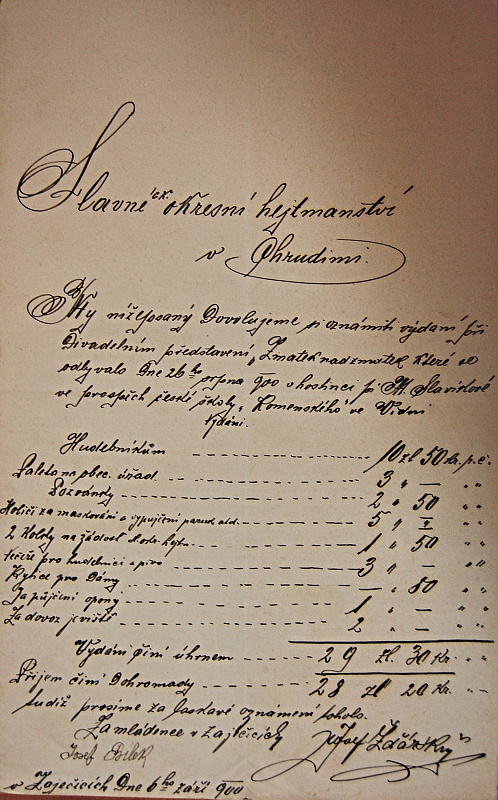 Slavné c.k. okresní hejtmanství
v Chrudimi.
My nížepsaný Dovolujeme si oznámiti výdaní při
Divadelním představení „Zmatek nad zmatek které se
odbývalo Dne 26ho srpna 900 v hostinci p. M. Slavíkové
ve prospěch české školy „Komenského" ve Vídni
Vydání.
Hudebníkům 10 zl 50 kr. r.č.
Paleta na obec. úřad. 3 " — " "
Pozvánky 2 " 50 " "
Holiči za maskování a vypůjčení paruk atd. 5 " — " "
2 Kolky na žádost k okr. hejtm. 1 " 50 " "
pro hudebníci a pivo 3 " — " "
Kytice pro Dámy — " 80 " "
Za půjčení opony 1 " — " "
Za dovoz jeviště 2 " — " "
Vydání činí úhrnem 29 zl. 30 Kr. " "
Příjem činí Dohromady 28 zl 20 Kr. " "
tudíž prosíme za laskavé oznámení tohoto.
Za mládence v Zaječicích
Josef Bílek Josef Žďárský
v Zaječicích Dne 6ho září 900